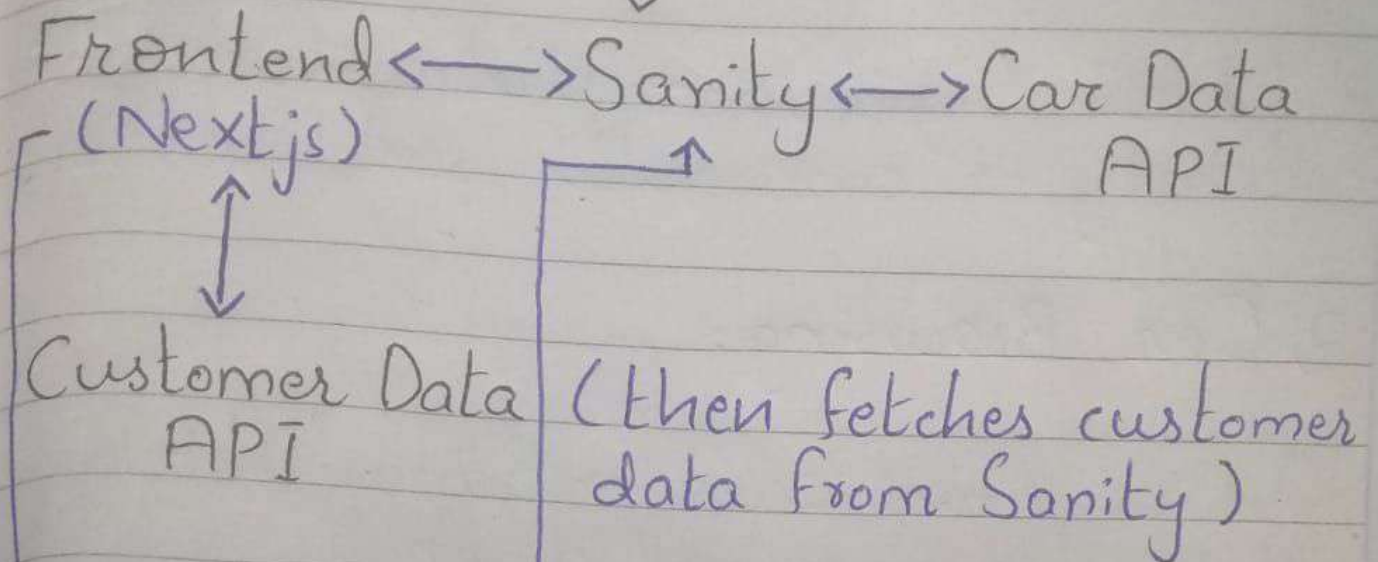 Frontend <--> Sanity <--> Car Data
(Nextjs) API
Customer Data (then fetches customer
API data from Sanity)